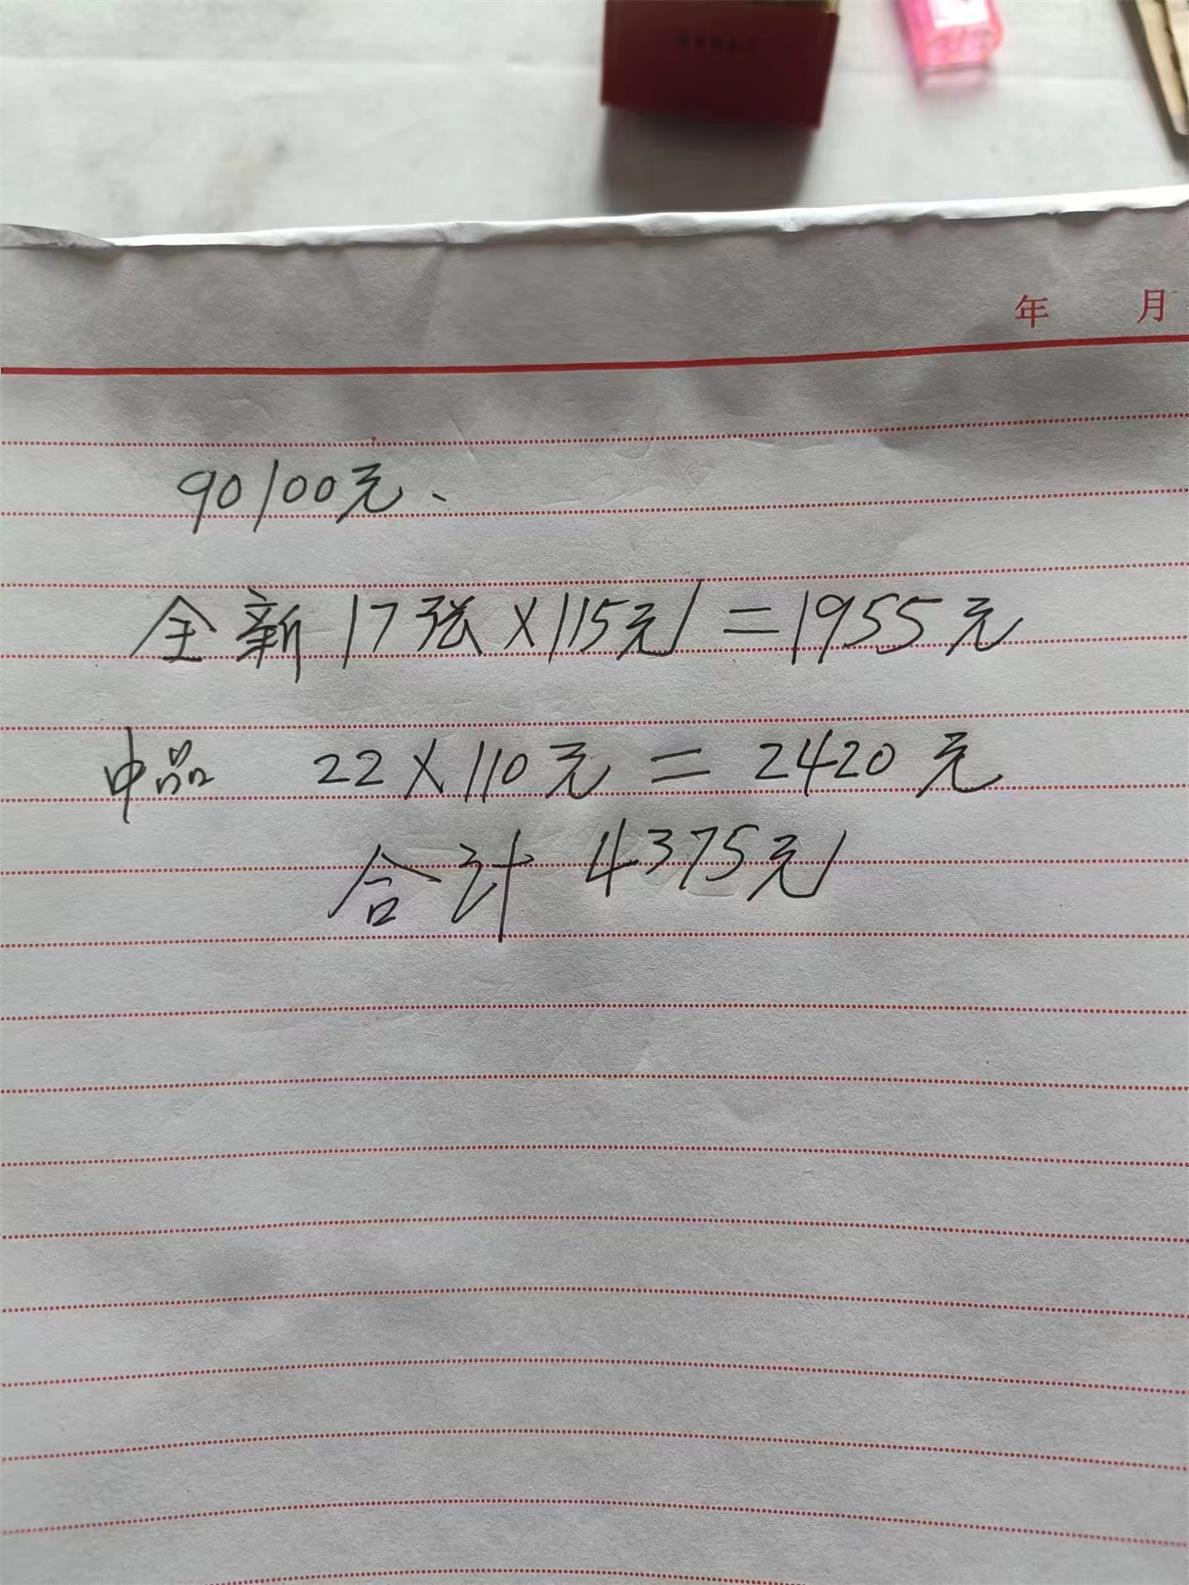 年 月
90100元、
全新17张×115元=1955元
中品 22×110元=2420元
合计4375元